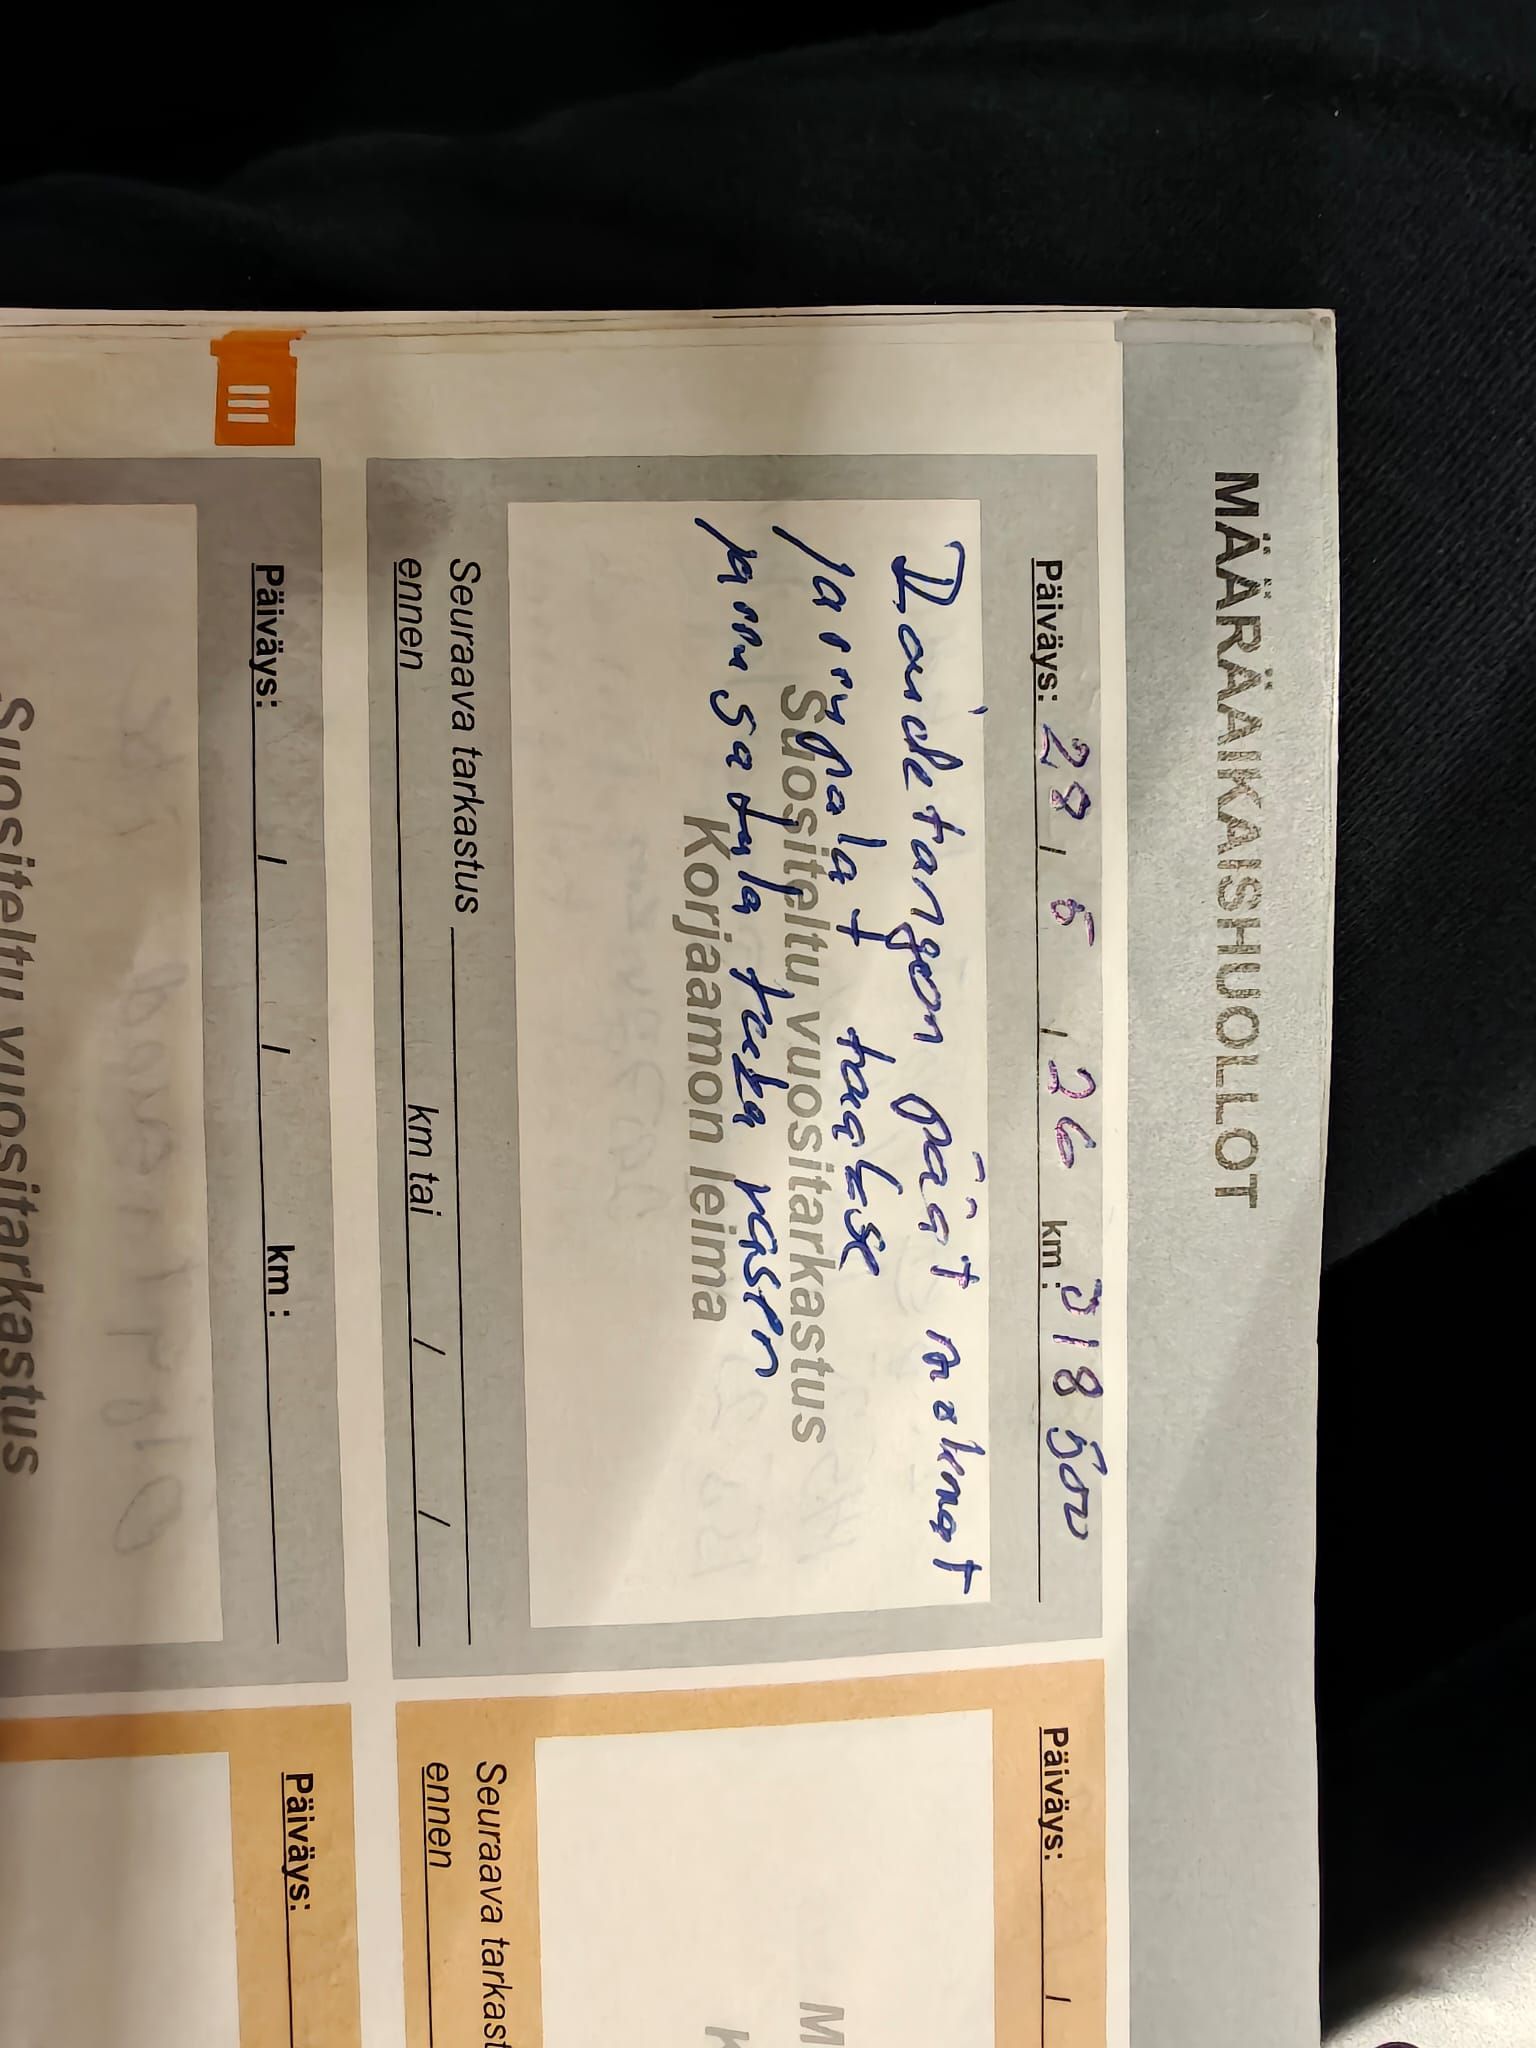 MÄÄRÄAIKAISHUOLLOT
Päiväys: 28 / 5 / 26 km: 318 500
Raidetangon päät molemat
Jarrupalat taakse
Jarrusatula taka vasen
Suositeltu vuositarkastus
Korjaamon leima
Seuraava tarkastus
ennen km tai / /
Päiväys: /
M
K
Seuraava tarkast
ennen
III
Päiväys: / / km:
Suositeltu vuositarkastus
Päiväys: